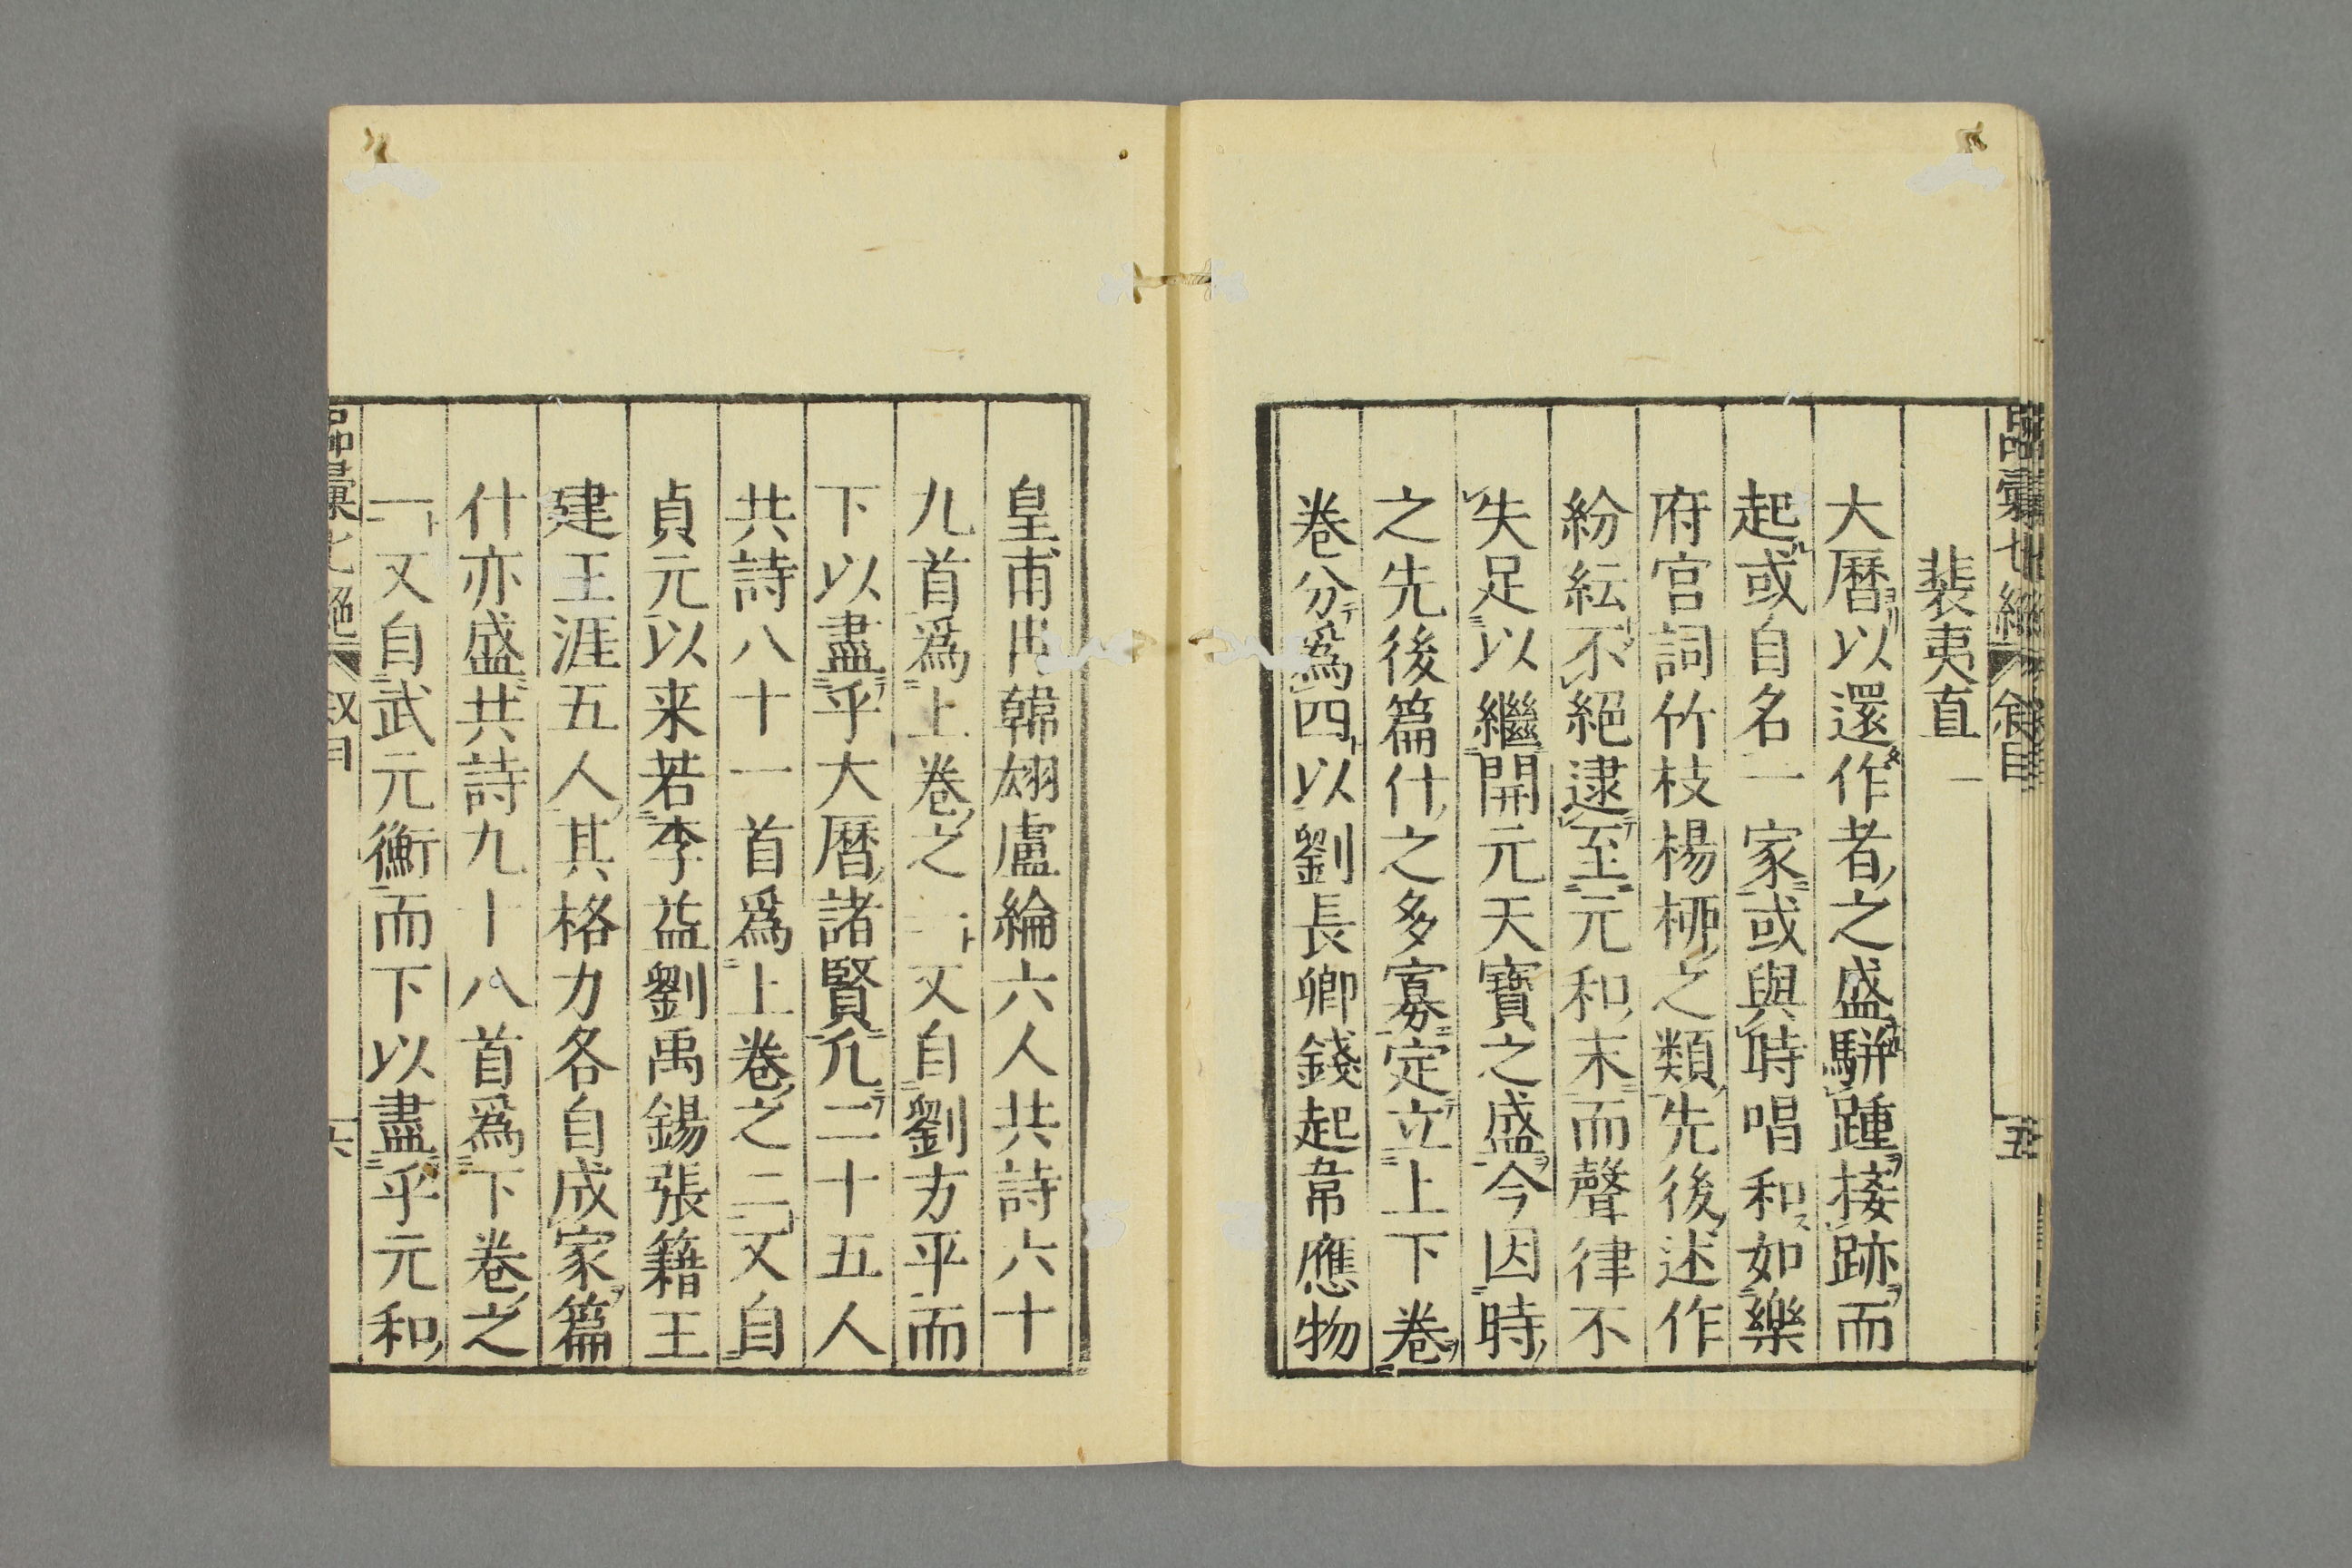 品彙七絶 叙目 五
裴夷直 一
大暦以還作者之盛駢踵接跡而
起或自名一家或與時唱和如樂
府宮詞竹枝楊桺之類先後述作
紛紜不絕逮至元和末而聲律不
失足以繼開元天寶之盛今因時
之先後篇什之多寡定立上下卷
卷分爲四以劉長卿錢起韋應物
皇甫冉韓翃盧綸六人共詩六十
九首爲上卷之一又自劉方平而
下以盡乎大暦諸賢凢二十五人
共詩八十一首爲上卷之二又自
貞元以来若李益劉禹錫張籍王
建王涯五人其格力各自成家篇
什亦盛共詩九十八首爲下卷之
一又自武元衡而下以盡乎元和
品彙七絶 叙目 六